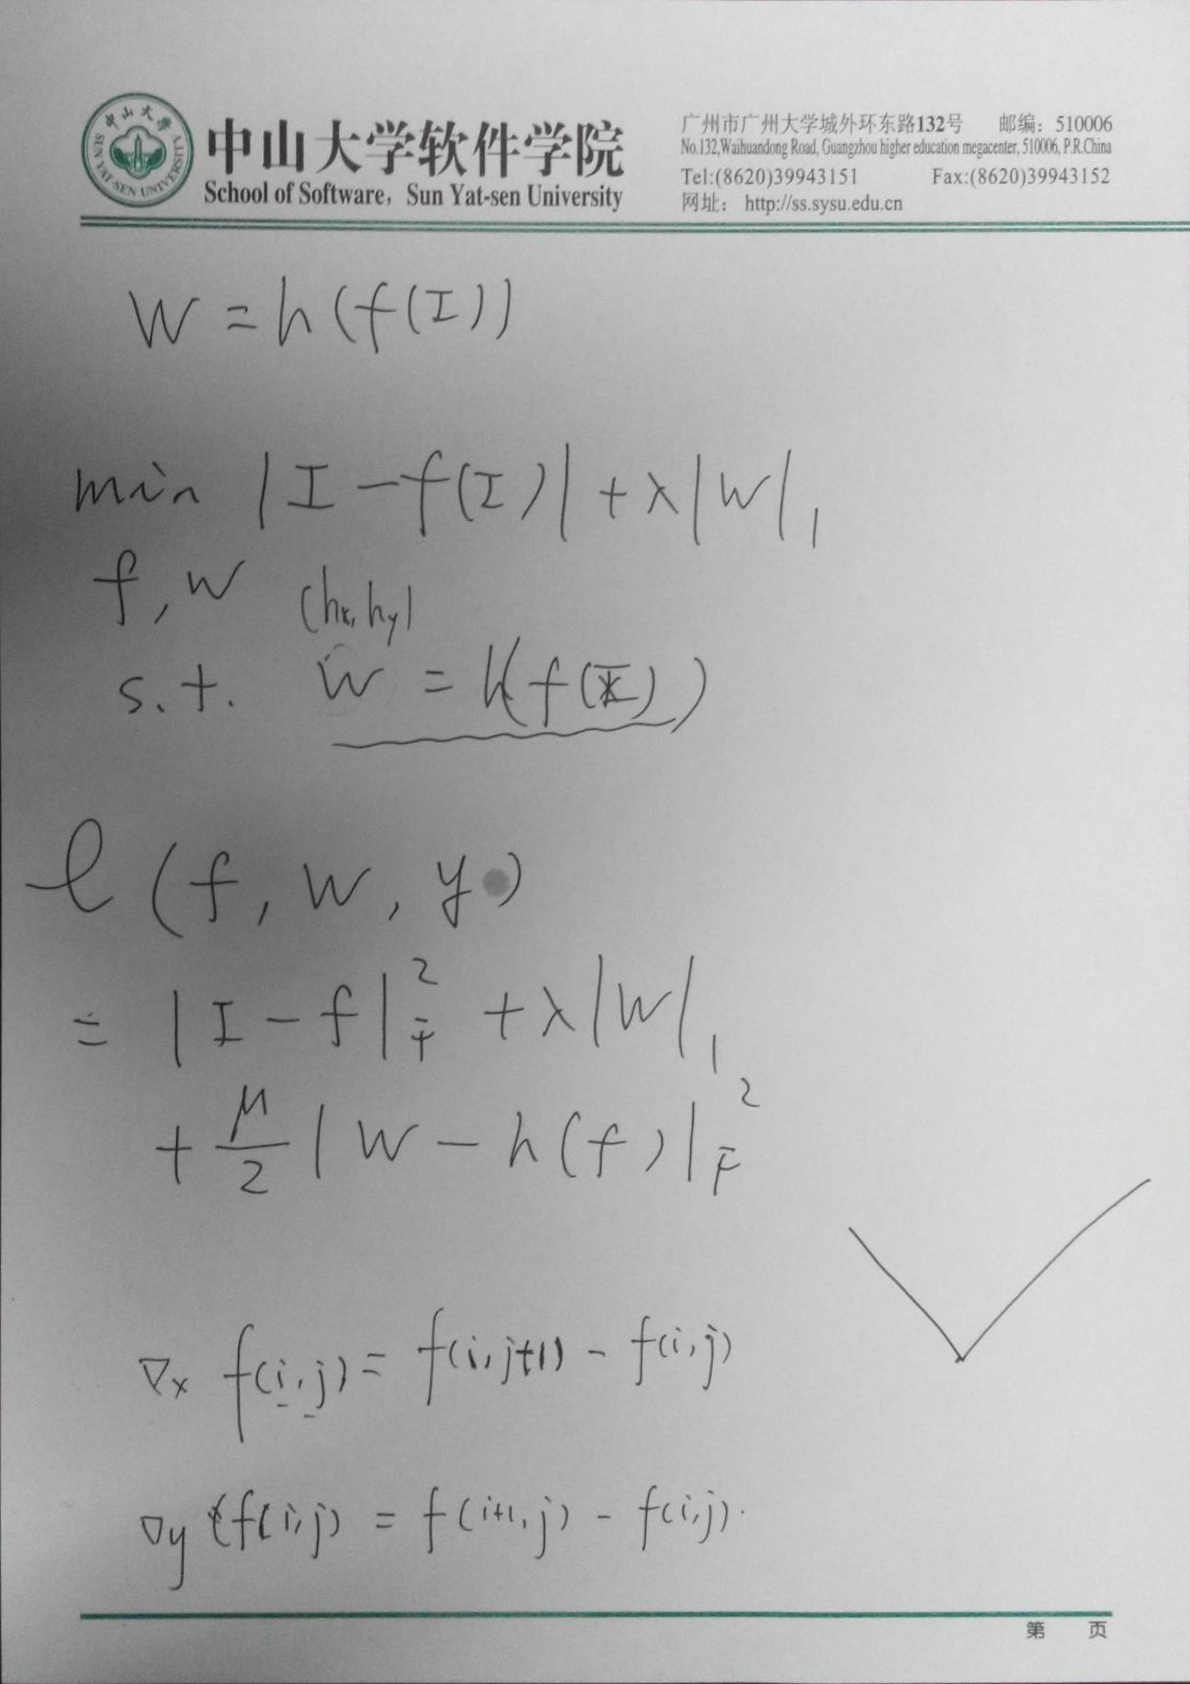 中山大学
SUN YAT-SEN UNIVERSITY
中山大学软件学院
School of Software, Sun Yat-sen University
广州市广州大学城外环东路132号 邮编：510006
No.132,Waihuandong Road, Guangzhou higher education megacenter, 510006, P.R.China
Tel:(8620)39943151 Fax:(8620)39943152
网址： http://ss.sysu.edu.cn
W = h(f(I))
min |I - f(I)| + λ|W|₁
f, w (hx, hy)
s.t. W = h(f(I))
ℓ(f, W, y)
= |I - f|²_F + λ|W|₁
+ μ/2 |W - h(f)|²_F
∇x f(i,j) = f(i,j+1) - f(i,j)
∇y f(i,j) = f(i+1,j) - f(i,j).
第 页